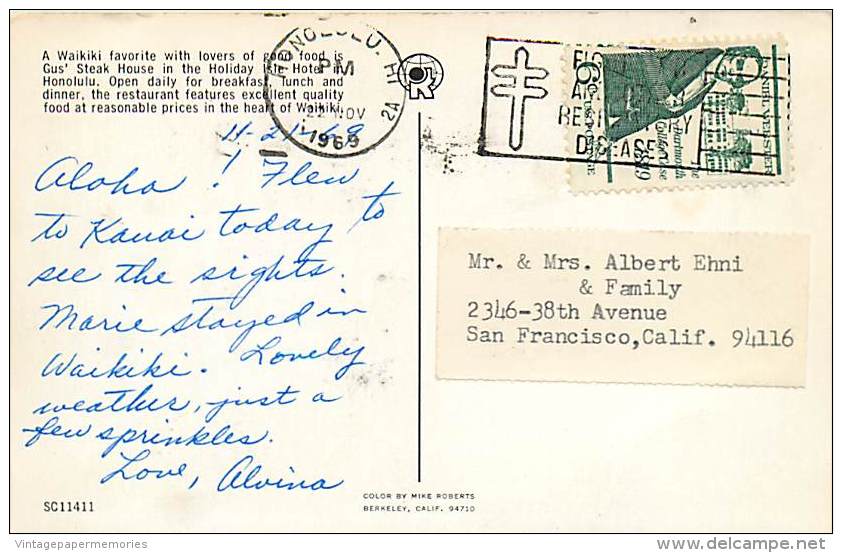 A Waikiki favorite with lovers of good food is
Gus' Steak House in the Holiday Isle Hotel in
Honolulu. Open daily for breakfast, lunch and
dinner, the restaurant features excellent quality
food at reasonable prices in the heart of Waikiki.
HONOLULU, HI
PM
22 NOV
1969
2A
RESPIRATORY
DISEASE
6c US POSTAGE
DANIEL WEBSTER
Dartmouth
College Case
1819
11-21-69
Aloha! Flew
to Kauai today to
see the sights.
Marie stayed in
Waikiki. Lovely
weather, just a
few sprinkles.
Love, Alvina
Mr. & Mrs. Albert Ehni
& Family
2346-38th Avenue
San Francisco,Calif. 94116
SC11411
COLOR BY MIKE ROBERTS
BERKELEY, CALIF. 94710
Vintagepapermemories
delcampe.net